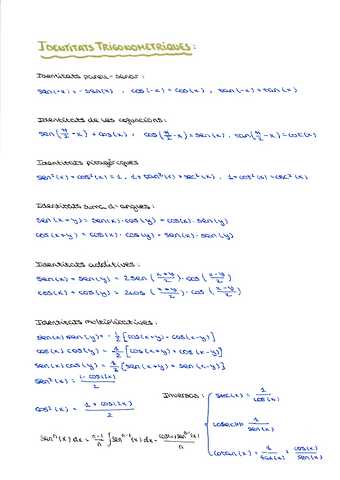 IDENTITATS TRIGONOMÈTRIQUES:
Identitats parell-senar:
sen(-x) = -sen(x) , cos(-x) = cos(x) , tan(-x) = tan(x)
Identitats de les cofuncions:
sen(π/2 - x) = cos(x) , cos(π/2 - x) = sen(x) , tan(π/2 - x) = cot(x)
Identitats pitagòriques
sen²(x) + cos²(x) = 1 , 1 + tan²(x) = sec²(x) , 1 + cot²(x) = csc²(x)
Identitats suma d'angles:
sen(x+y) = sen(x)·cos(y) + cos(x)·sen(y)
cos(x+y) = cos(x)·cos(y) + sen(x)·sen(y)
Identitats additives:
sen(x) + sen(y) = 2sen(x+y/2)·cos(x-y/2)
cos(x) + cos(y) = 2cos(x+y/2)·cos(x-y/2)
Identitats multiplicatives:
sen(x) sen(y) = -1/2 [cos(x+y) - cos(x-y)]
cos(x) cos(y) = 1/2 [cos(x+y) + cos(x-y)]
sen(x) cos(y) = 1/2 [sen(x+y) + sen(x-y)]
sen²(x) = 1-cos(2x)/2
Inversos: sec(x) = 1/cos(x)
cos²(x) = 1+cos(2x)/2
cosec(x) = 1/sen(x)
senⁿ(x) dx = n-1/n ∫senⁿ⁻²(x) dx - cos(x) senⁿ⁻¹(x)/n
cotan(x) = 1/tan(x) = cos(x)/sen(x)